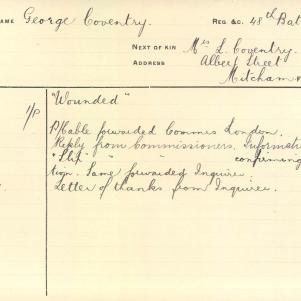 NAME George Coventry. REG &C. 48th Bat
NEXT OF KIN Mrs L. Coventry.
ADDRESS Albert Street
Mitcham
"Wounded"
Cable forwarded Commrs London.
Reply from Commissioners. Informat
" " confirming
Same forwarded Inquirer.
Letter of thanks from Inquirer.